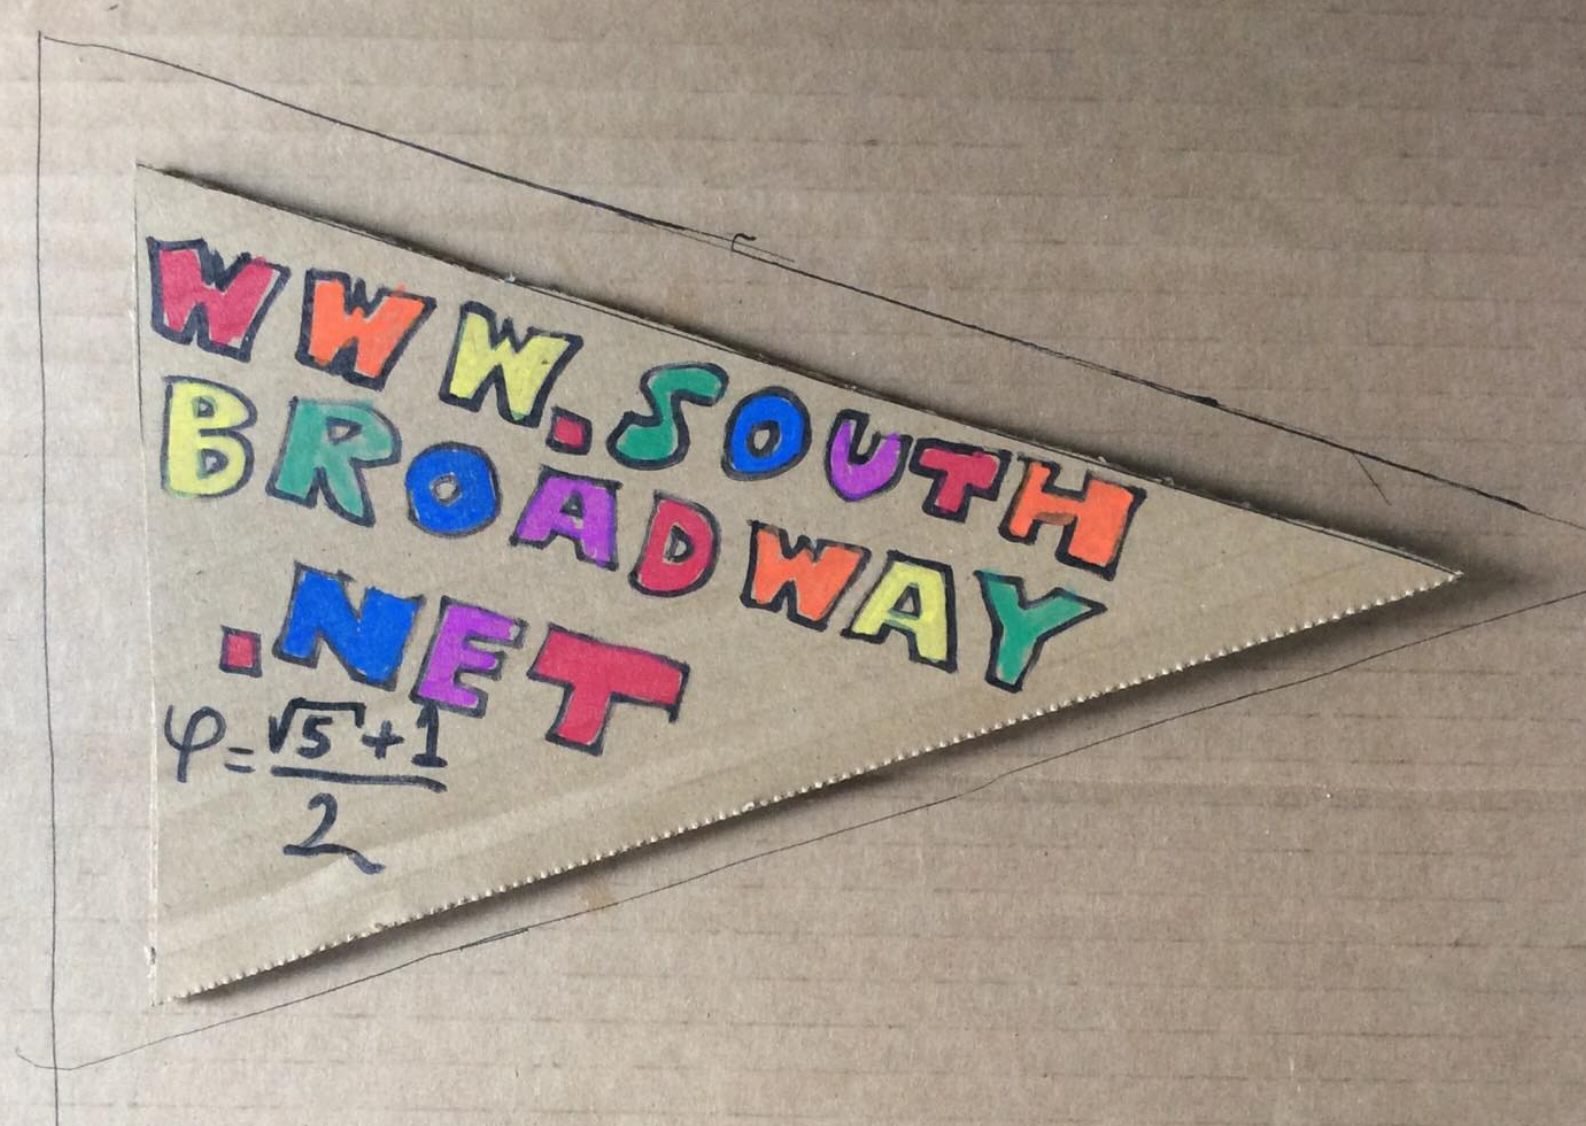 WWW.SOUTH
BROADWAY
.NET
φ=√5+1
2